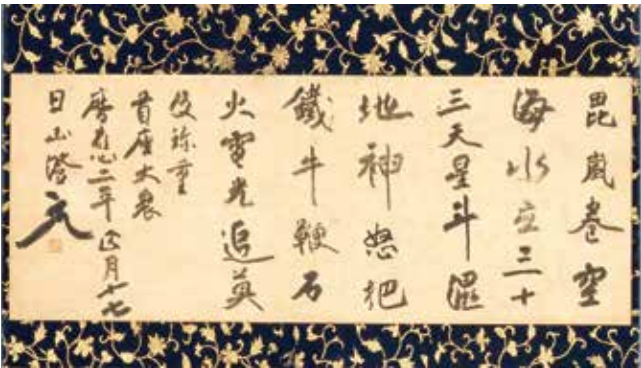 毘嵐巻空
海水立三十
三天星斗濕
地神怒把
鐵牛鞭石
火電光追莫
及珍重
首座大衆
暦応二年正月十七
日山澄